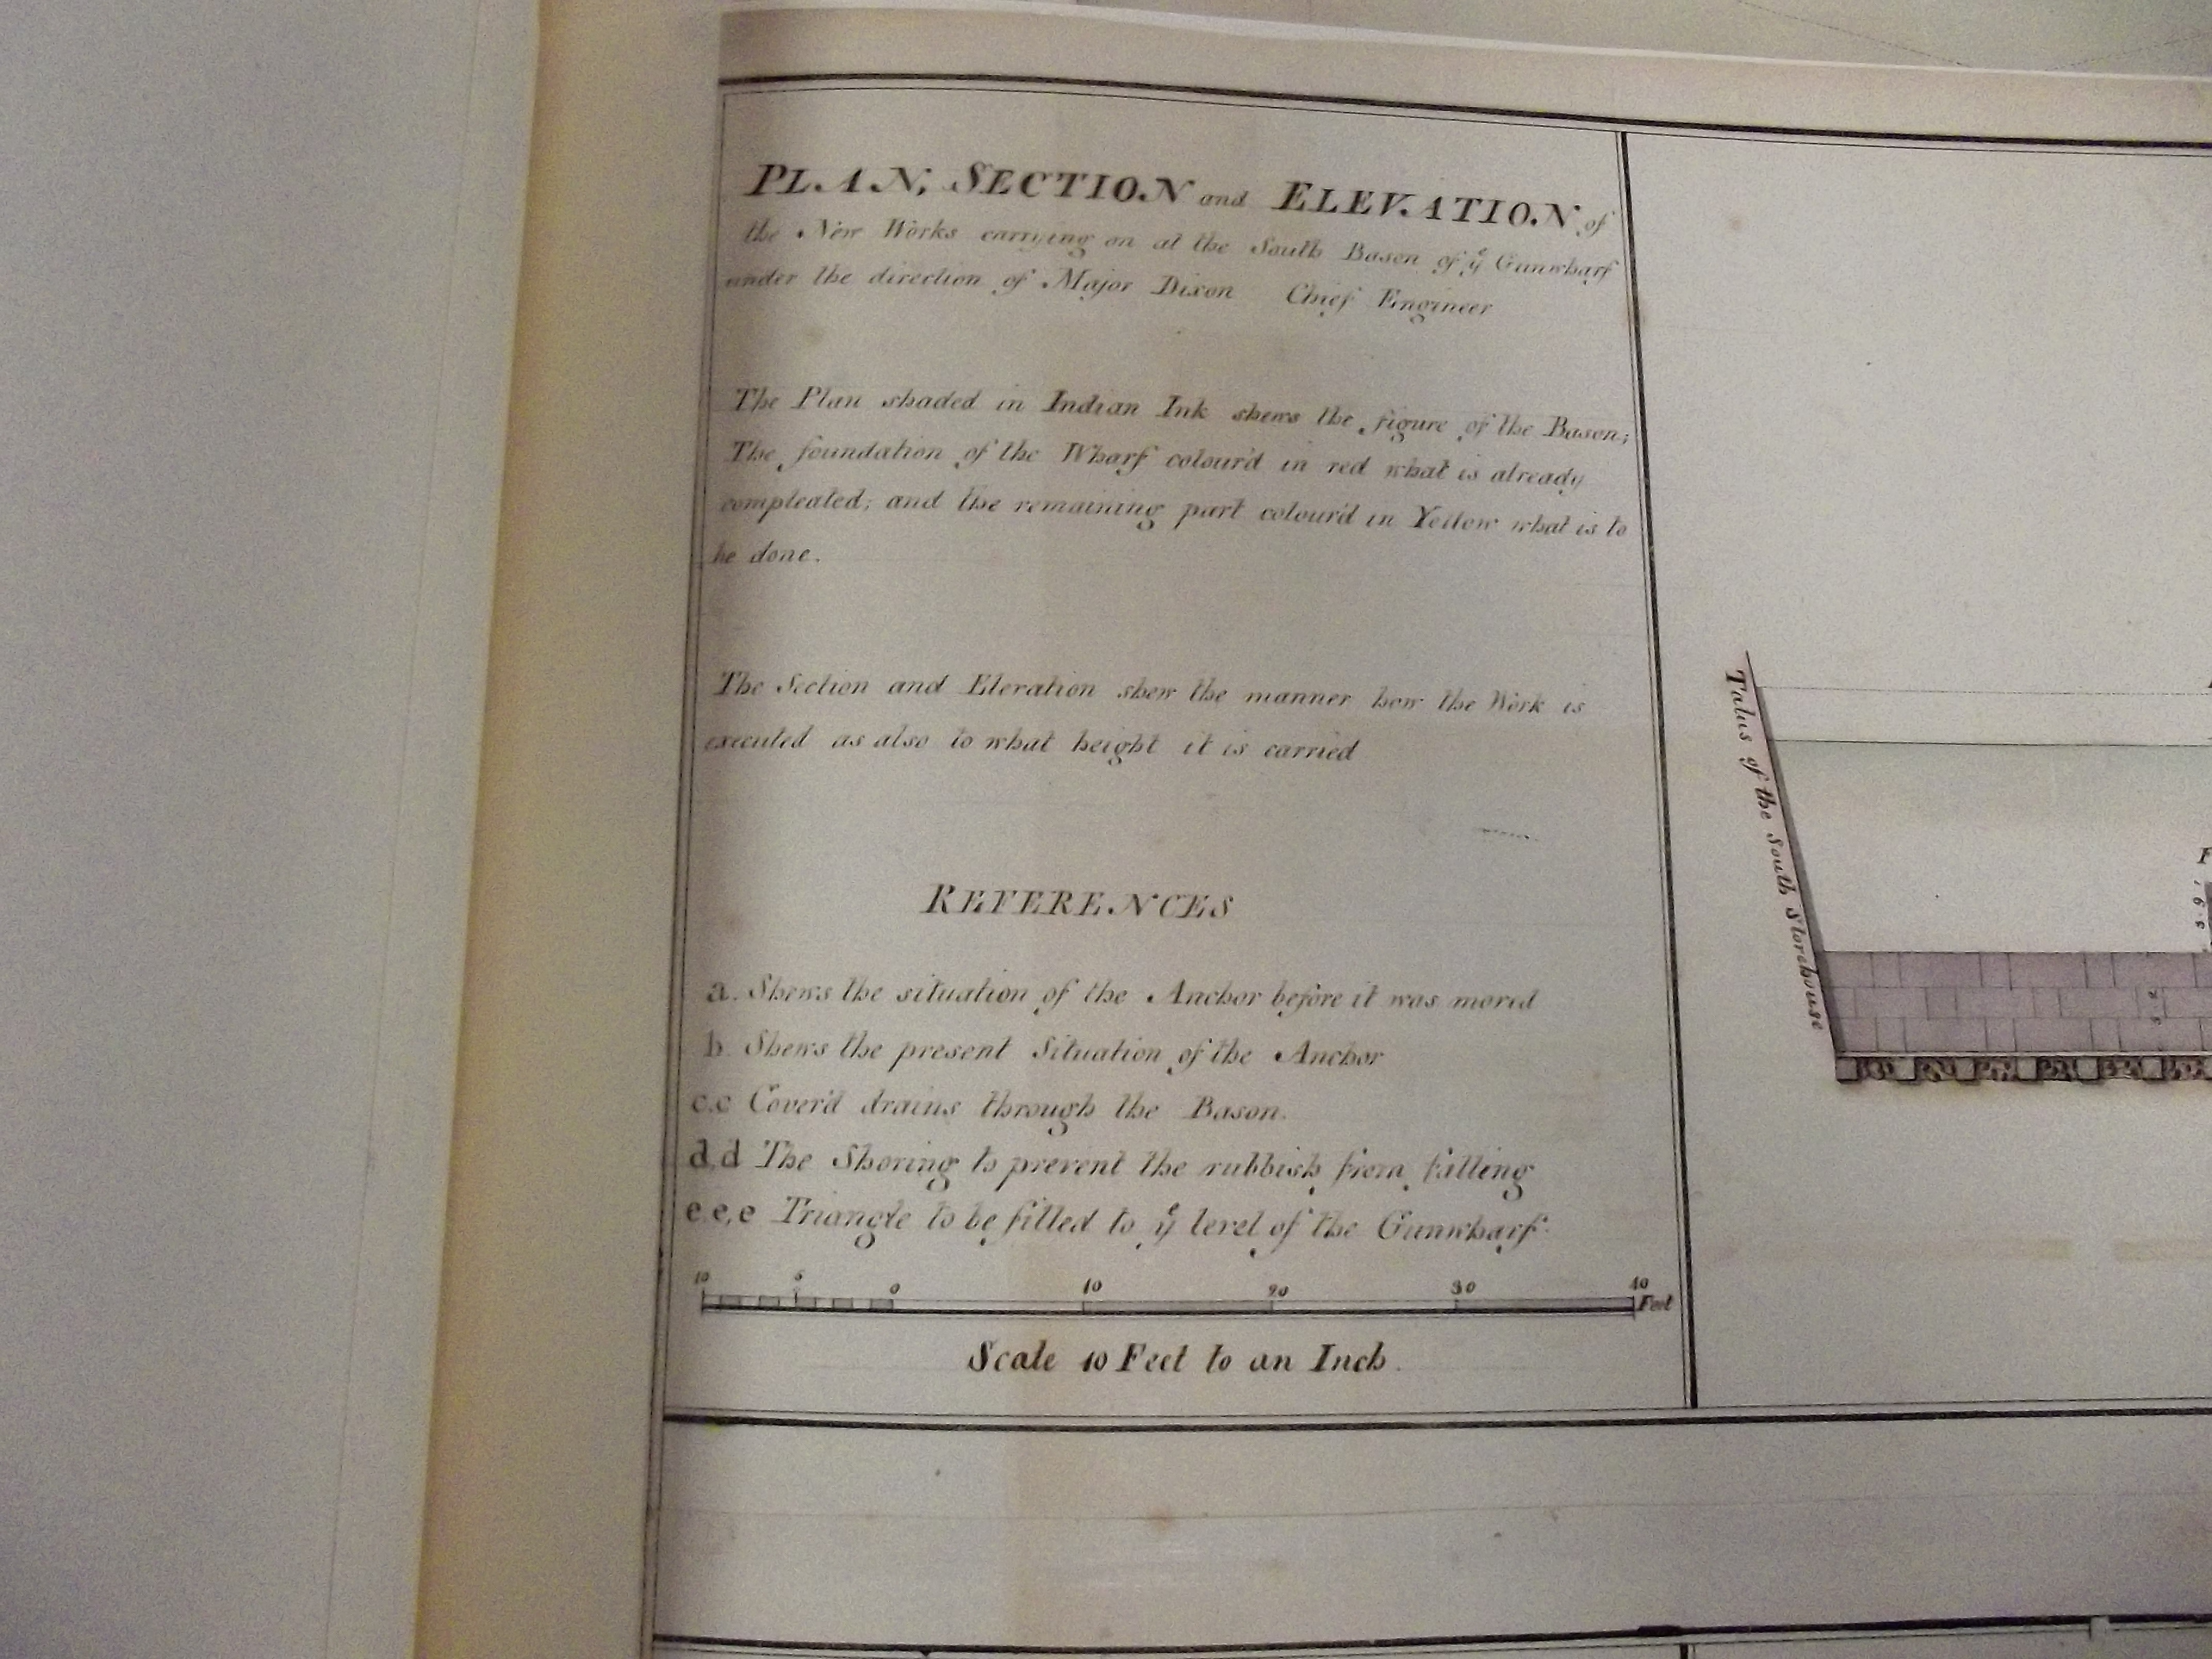 PLAN, SECTION and ELEVATION of
the New Works carrying on at the South Bason of yͤ Gunwharf
under the direction of Major Dixon Chief Engineer
The Plan shaded in Indian Ink shews the figure of the Bason;
The foundation of the Wharf colour'd in red what is already
compleated; and the remaining part colour'd in Yellow what is to
be done.
The Section and Elevation shew the manner how the Work is
executed as also to what height it is carried
REFERENCES
a. Shews the situation of the Anchor before it was moved
b. Shews the present Situation of the Anchor
c.c Cover'd drains through the Bason.
d,d The Shoring to prevent the rubbish from falling
e,e,e Triangle to be filled to yͤ level of the Gunwharf.
10 5 0 10 20 30 40
Feet
Scale 10 Feet to an Inch.
Talus of the South Storehouse